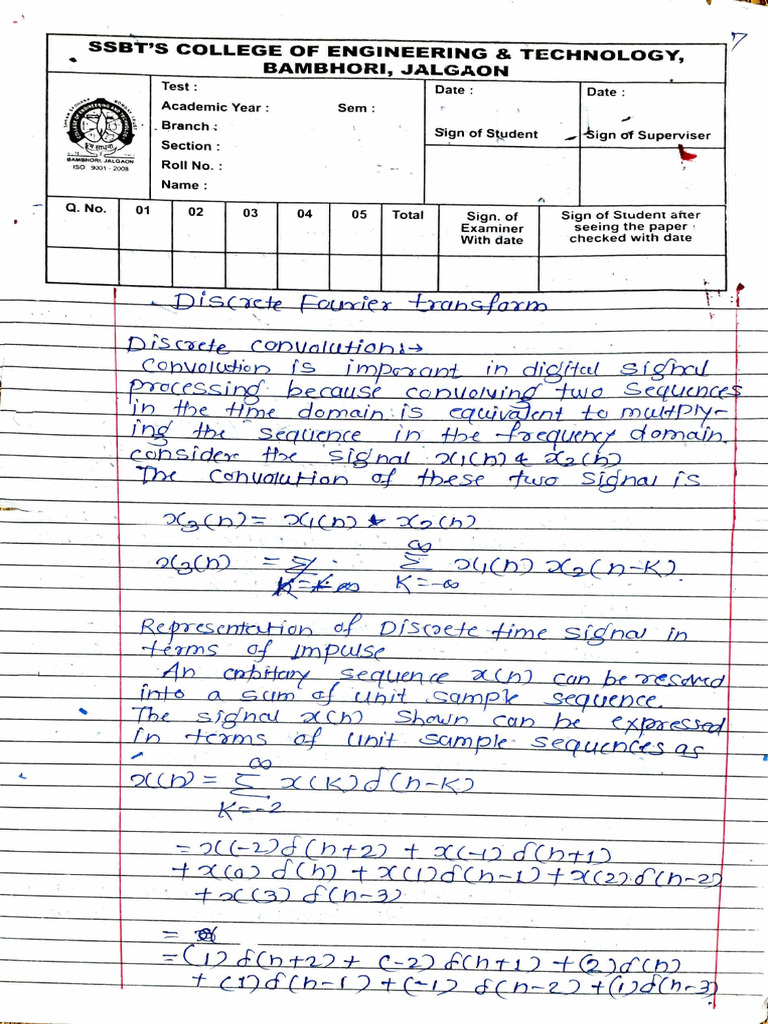 7
SSBT'S COLLEGE OF ENGINEERING & TECHNOLOGY,
BAMBHORI, JALGAON
BAMBHORI, JALGAON
ISO 9001 - 2008
Test :
Academic Year : Sem :
Branch :
Section :
Roll No. :
Name :
Date :
Sign of Student
Date :
Sign of Superviser
Q. No. 01 02 03 04 05 Total Sign. of Examiner With date Sign of Student after seeing the paper checked with date
Discrete Fourier transform
Discrete convolution:→
Convolution is imporant in digital signal
processing because convolving two sequences
in the time domain is equivalent to multiply-
ing the sequence in the frequency domain.
consider the signal x1(n) & x2(n)
The convolution of these two signal is
x3(n) = x1(n) * x2(n)
x3(n) = ∞ Σ K=-∞ x1(n) x2(n-K).
Representation of Discrete time signal in
terms of impulse
An arbitary sequence x(n) can be resolved
into a sum of unit sample sequence.
The signal x(n) shown can be expressed
in terms of unit sample sequences as
x(n) = ∞ Σ K=-2 x(K) δ(n-K)
= x(-2) δ(n+2) + x(-1) δ(n+1)
+ x(0) δ(n) + x(1) δ(n-1) + x(2) δ(n-2)
+ x(3) δ(n-3)
=
= (1) δ(n+2) + (-2) δ(n+1) + (2) δ(n)
+ (1) δ(n-1) + (-1) δ(n-2) + (1) δ(n-3)